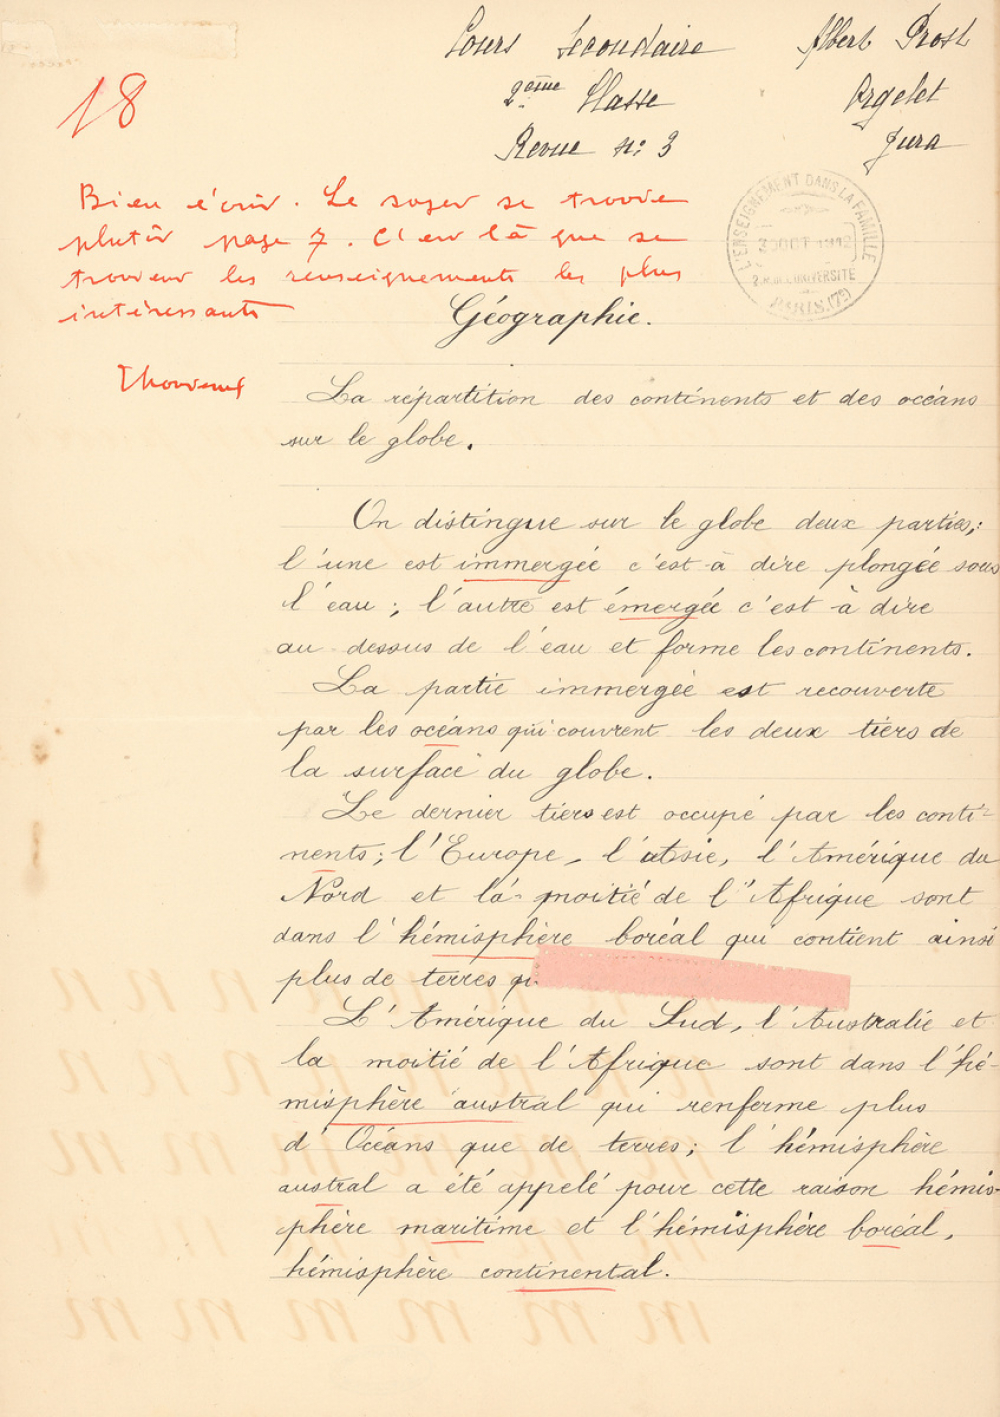 Cours Secondaire
Albert Prost
2ème Classe
Orgelet
Revue n: 3
Jura
18
Bien écrit. Le sujet se trouve
plutôt page 7. C'est là que se
trouvent les renseignements les plus
intéressants
L'ENSEIGNEMENT DANS LA FAMILLE
3 OCT 1912
2 R. DE L'UNIVERSITE
PARIS. (7e)
Géographie.
La répartition des continents et des océans
sur le globe.
On distingue sur le globe deux parties;
l'une est immergée c'est-à dire plongée sous
l'eau; l'autre est émergée c'est à dire
au-dessus de l'eau et forme les continents.
La partie immergée est recouverte
par les océans qui couvrent les deux tiers de
la surface du globe.
Le dernier tiers est occupé par les conti-
nents; l'Europe, l'Asie, l'Amérique du
Nord et la moitié de l'Afrique sont
dans l'hémisphère boréal qui contient ainsi
plus de terres
L'Amérique du Sud, l'Australie et
la moitié de l'Afrique sont dans l'hé-
misphère austral qui renferme plus
d'Océans que de terres; l'hémisphère
austral a été appelé pour cette raison hémis-
phère maritime et l'hémisphère boréal,
hémisphère continental.